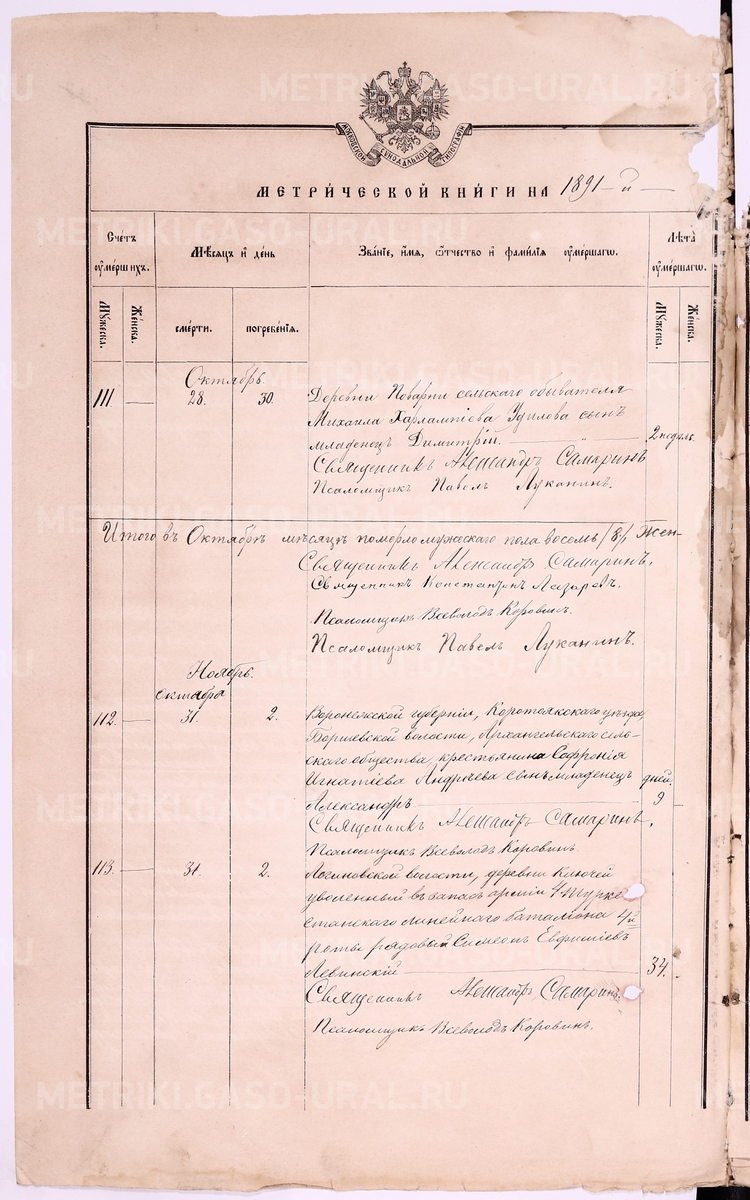 МОСКОВСКОЙ СѴНОДАЛЬНОЙ ТИПОГРАФІИ
МЕТРИ́ЧЕСКОЙ КНИ́ГИ НА 1891-й
Сче́тъ ᲂумершихъ.
Мѣсяцъ и день
Зва́ніе, и́мя, ѻ҆тчество и фами́лія ᲂуме́ршагѡ.
Лѣта ᲂуме́ршагѡ.
Мꙋжеска.
Же́нска.
сме́рти.
погребе́нія.
Мꙋжеска.
Же́нска.
Октябрь.
111 — 28. 30. Деревни Поварни сельскаго обывателя
Михаила Харлампіева Удилова сынъ
младенецъ Димитрій. — 2 недѣль.
Священникъ Александръ Самаринъ
Псаломщикъ Павелъ Луканинъ.
Итого въ Октябрѣ мѣсяцѣ померло мужескаго пола восемь /8/, жен-
Священникъ Александръ Самаринъ.
Священникъ Константинъ Лазаревъ.
Псаломщикъ Всеволодъ Коровинъ.
Псаломщикъ Павелъ Луканинъ.
Ноябрь.
октября
112. — 31. 2. Воронежской губерніи, Коротоякского уѣзда,
волости, Архангельскаго сель-
скаго общества, крестьянина Софронія
Игнатіева Андрѣева сынъ младенецъ дней.
Александръ — 9
Священникъ Александръ Самаринъ.
Псаломщикъ Всеволодъ Коровинъ.
113. — 31. 2. Логиновской волости, деревни Ключей
уволенный въ запасъ арміи 4 Турке-
станскаго линейнаго баталіона 4й
роты рядовый Симеонъ
Левинскій — 34.
Священникъ Александръ Самаринъ.
Псаломщикъ Всеволодъ Коровинъ.
METRIKI.GASO-URAL.RU